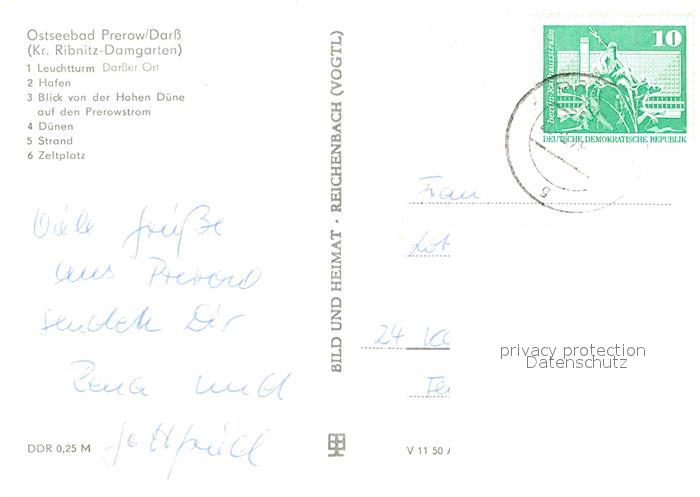 Ostseebad Prerow/Darß
(Kr. Ribnitz-Damgarten)
1 Leuchtturm Darßer Ort
2 Hafen
3 Blick von der Hohen Düne
auf den Prerowstrom
4 Dünen
5 Strand
6 Zeltplatz
Viele Grüße
aus Prerow
sendet Dir
und
Gottfried
DDR 0,25 M
BILD UND HEIMAT · REICHENBACH (VOGTL)
10
DEUTSCHE DEMOKRATISCHE REPUBLIK
5
Frau
24
privacy protection
Datenschutz
V 11 50 A